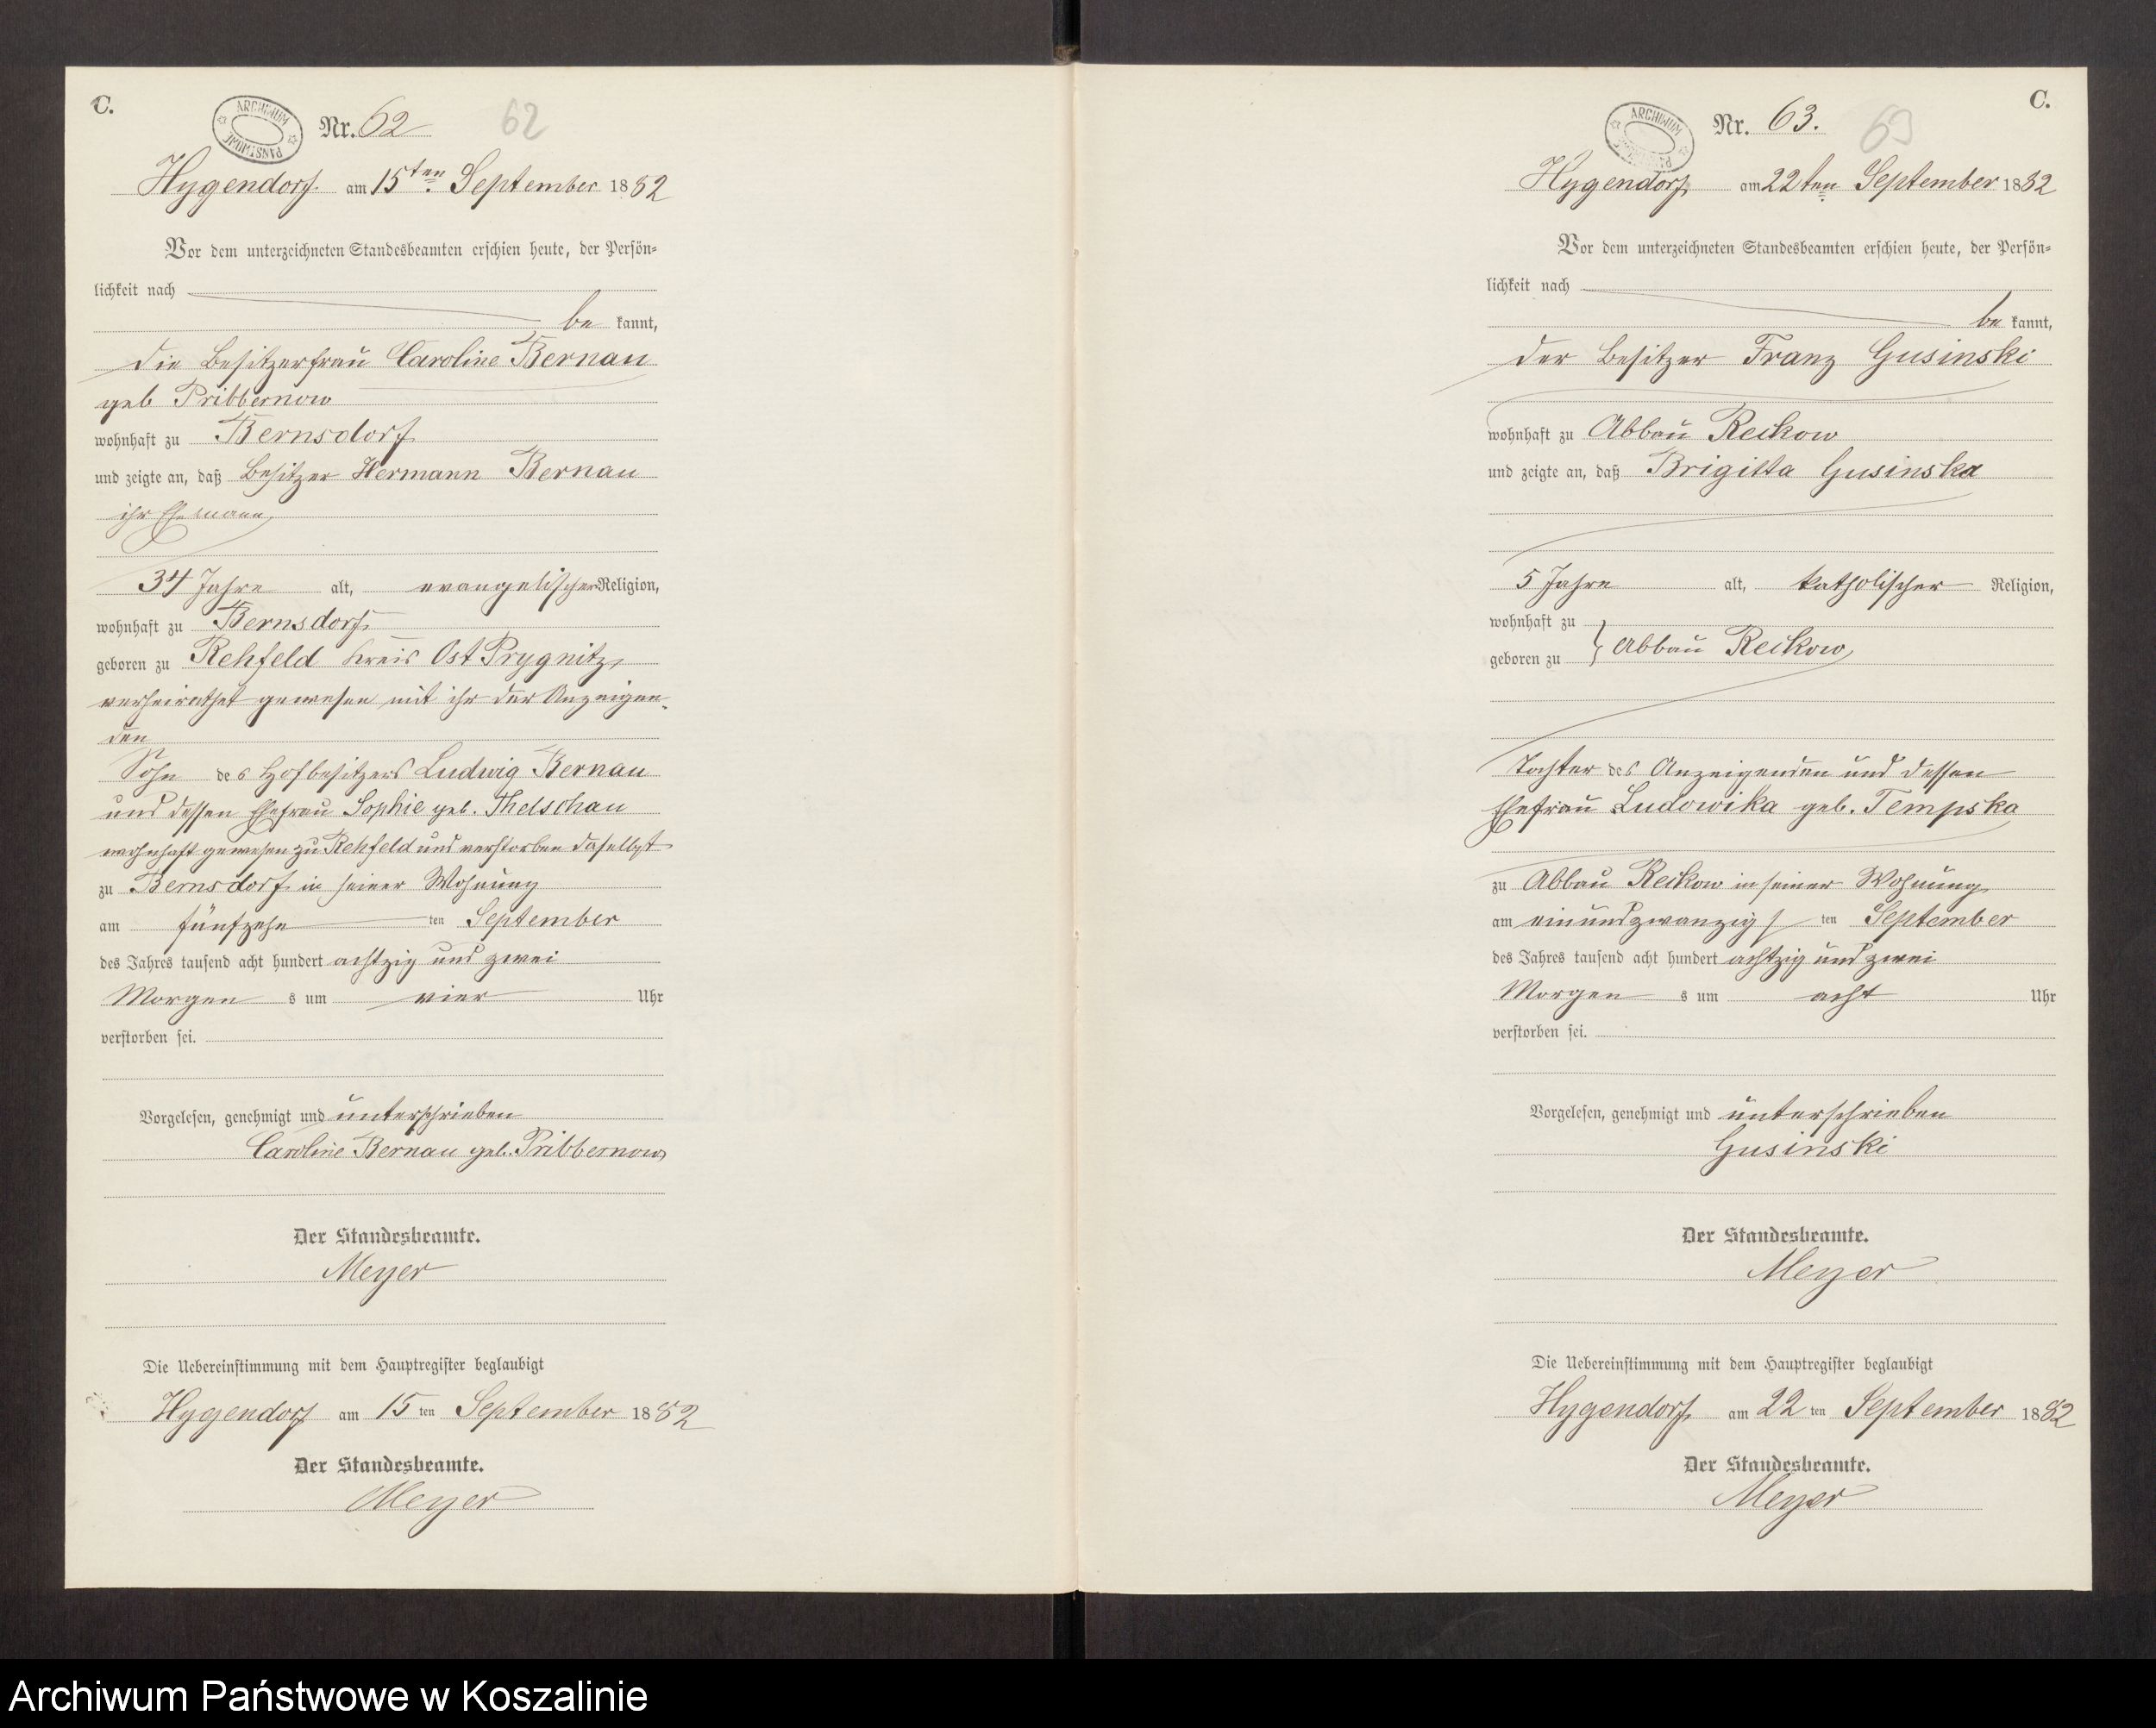 C.
ARCHIWUM PAŃSTWOWE
Nr. 62 62
Hygendorf am 15ten September 1882
Vor dem unterzeichneten Standesbeamten erschien heute, der Persön=
lichkeit nach
be kannt,
die Besitzerfrau Caroline Bernau
geb Pribbernow
wohnhaft zu Bernsdorf
und zeigte an, daß Besitzer Hermann Bernau
ihr Ehemann,
34 Jahre alt, evangelischer Religion,
wohnhaft zu Bernsdorf,
geboren zu Rehfeld Kreis Ost Prygnitz,
verheirathet gewesen mit ihr der Anzeigen-
den
Sohn des Hofbesitzers Ludwig Bernau
und dessen Ehefrau Sophie geb. Thelschau
wohnhaft gewesen zu Rehfeld und verstorben daselbst
zu Bernsdorf in seiner Wohnung
am fünfzehn ten September
des Jahres tausend acht hundert achtzig und zwei
Morgen s um vier Uhr
verstorben sei.
Vorgelesen, genehmigt und unterschrieben
Caroline Bernau geb. Pribbernow
Der Standesbeamte.
Meyer
Die Uebereinstimmung mit dem Hauptregister beglaubigt
Hygendorf am 15 ten September 1882
Der Standesbeamte.
Meyer
C.
ARCHIWUM PAŃSTWOWE
Nr. 63. 63
Hygendorf, am 22ten September 1882
Vor dem unterzeichneten Standesbeamten erschien heute, der Persön=
lichkeit nach
be kannt,
der Besitzer Franz Gusinski
wohnhaft zu Abbau Reckow
und zeigte an, daß Brigitta Gusinska
5 Jahre alt, katholischer Religion,
wohnhaft zu
geboren zu } Abbau Reckow,
Tochter des Anzeigenden und dessen
Ehefrau Ludowika geb. Tempska
zu Abbau Reckow in seiner Wohnung
am einundzwanzigs ten September
des Jahres tausend acht hundert achtzig und zwei
Morgen s um acht Uhr
verstorben sei.
Vorgelesen, genehmigt und unterschrieben
Gusinski
Der Standesbeamte.
Meyer
Die Uebereinstimmung mit dem Hauptregister beglaubigt
Hygendorf, am 22 ten September 1882
Der Standesbeamte.
Meyer
Archiwum Państwowe w Koszalinie